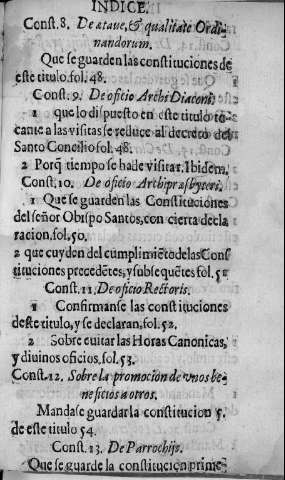 INDICE.
Const. 8. De ætate, & qualitate Ordi-
nandorum.
Que se guarden las constituciones de
este titulo.fol.48.
Const. 9. De oficio Archi Diaconi.
1 que lo dispuesto en este titulo to
cante a las visitas se reduce al decreto del
Santo Concilio fol.48.
2 Porq̃ tiempo se hade visitar. Ibidem.
Const. 10. De oficio Archipræsbyteri.
1 Que se guarden las Constituciones
del señor Obispo Santos, con cierta decla
racion, fol.50.
2 que cuyden del cumplimiẽto delas Cons
tituciones precedẽtes, y subsequẽtes fol. 51
Const. 11. De oficio Rectoris.
1 Confirmanse las constituciones
deste titulo, y se declaran, fol. 52.
2 Sobre euitar las Horas Canonicas,
y diuinos oficios, fol. 53.
Const. 12. Sobre la promocion de vnos be-
neficios a otros.
Mandase guardar la constitucion 5.
de este titulo 54.
Const. 13. De Parrochijs.
Que se guarde la constitucion prime-